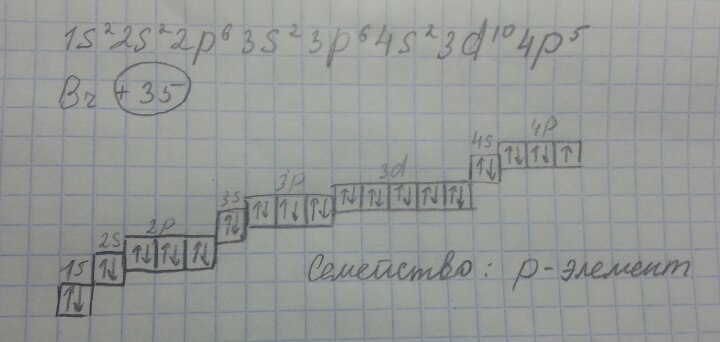 1s² 2s² 2p⁶ 3s² 3p⁶ 4s² 3d¹⁰ 4p⁵
Br +35
4s 4p
3s 3p 3d
1s 2s 2p
Семейство: p-элемент